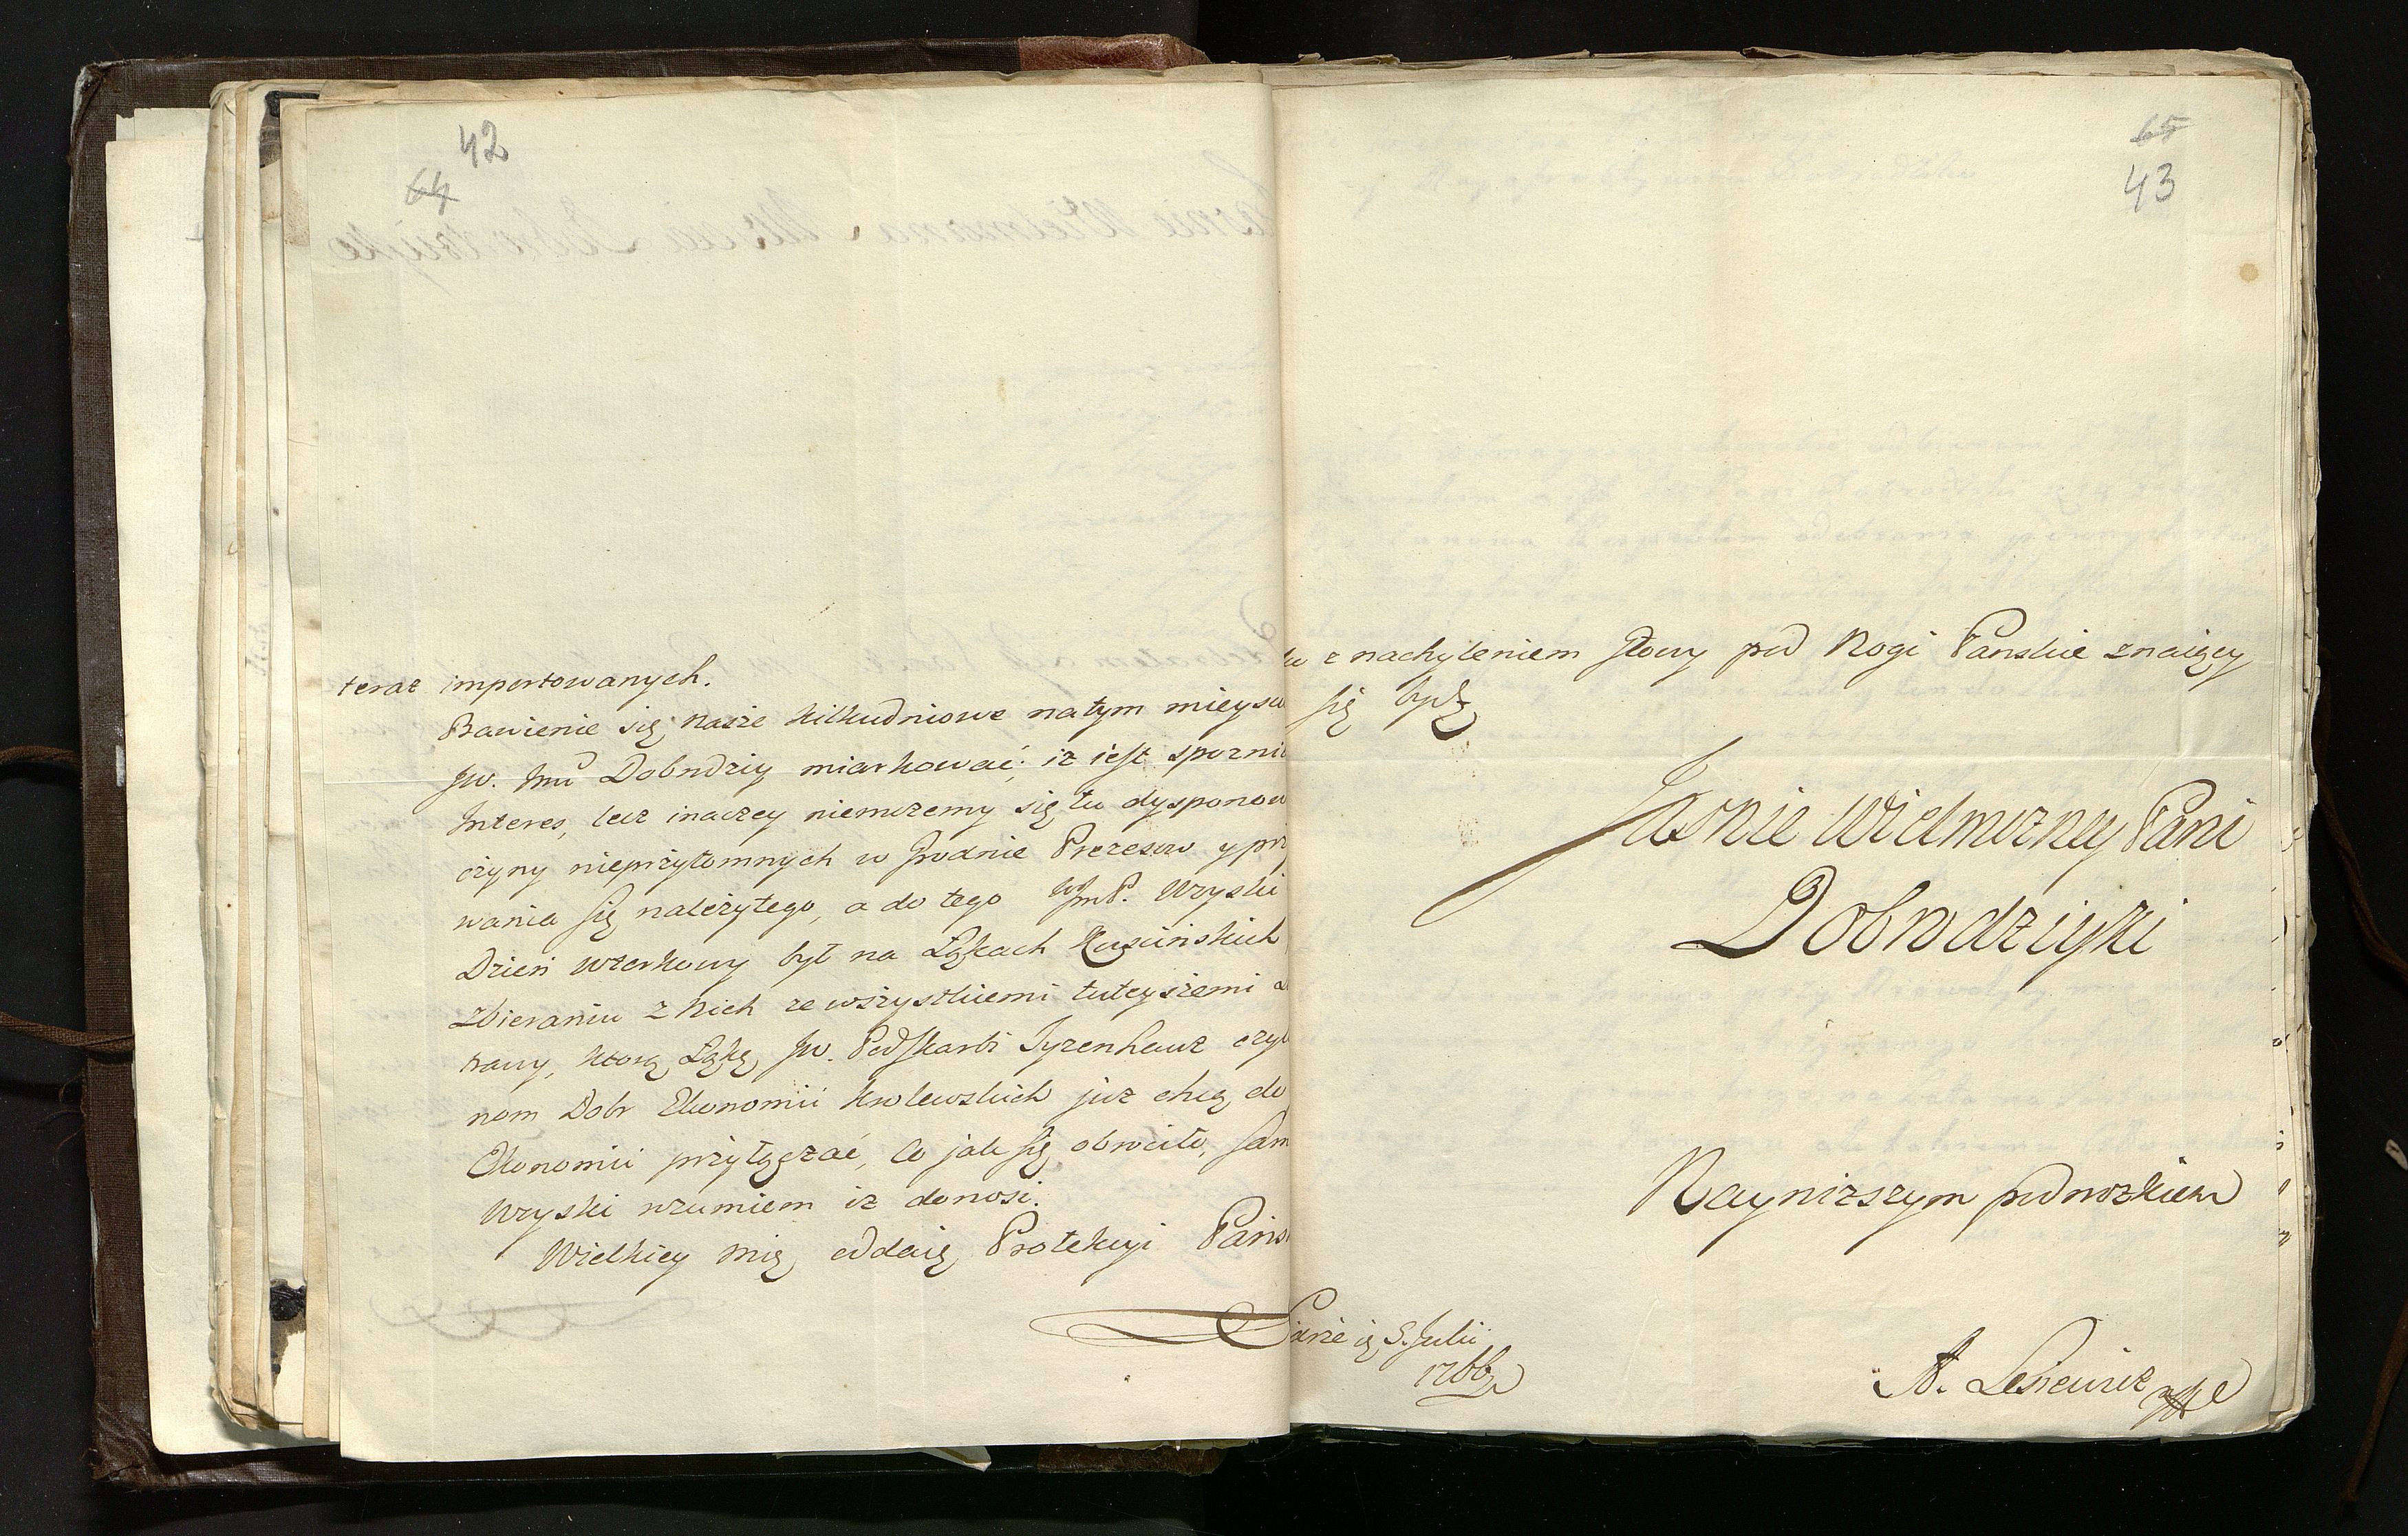 42
64
teraz importowanych.
Bawienie się nasze kilkudniowe na tym mieysc
Jw. Dobrodziy miarkować; iż iest spozni
Interes, lecz inaczey niemożemy się tu dysponow
czyny nieprzytomnych w Grodnie Prezesow y prz
wania się należytego, a do tego JmP. Wryski
Dzień wtorkowy był na Łąkach
zbieraniu z Nich ze wszystkiemi tuteyszemi
trawy, ktorą Łąkę Jw. Podskarbi Tyzenhauz
nom Dobr Ekonomii Krolewskich już chcą do
Ekonomii przyłączać, Co jak się obrociło, sam
Wryski rozumiem iż donosi.
Wielkiey mię oddaię Protekcyi Pańs
65
43
z nachyleniem Głowy pod Nogi Panskie znaiący
się bydź
Jasnie Wielmozney Pani
Dobrodziyki
Naynizszym podnozkiem
5. Julii
1766
A. Lesiewicz